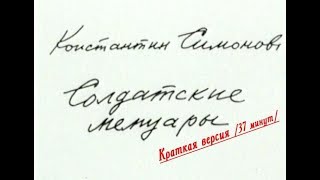 Константин Симонов
Солдатские
мемуары
Краткая версия /37 минут/